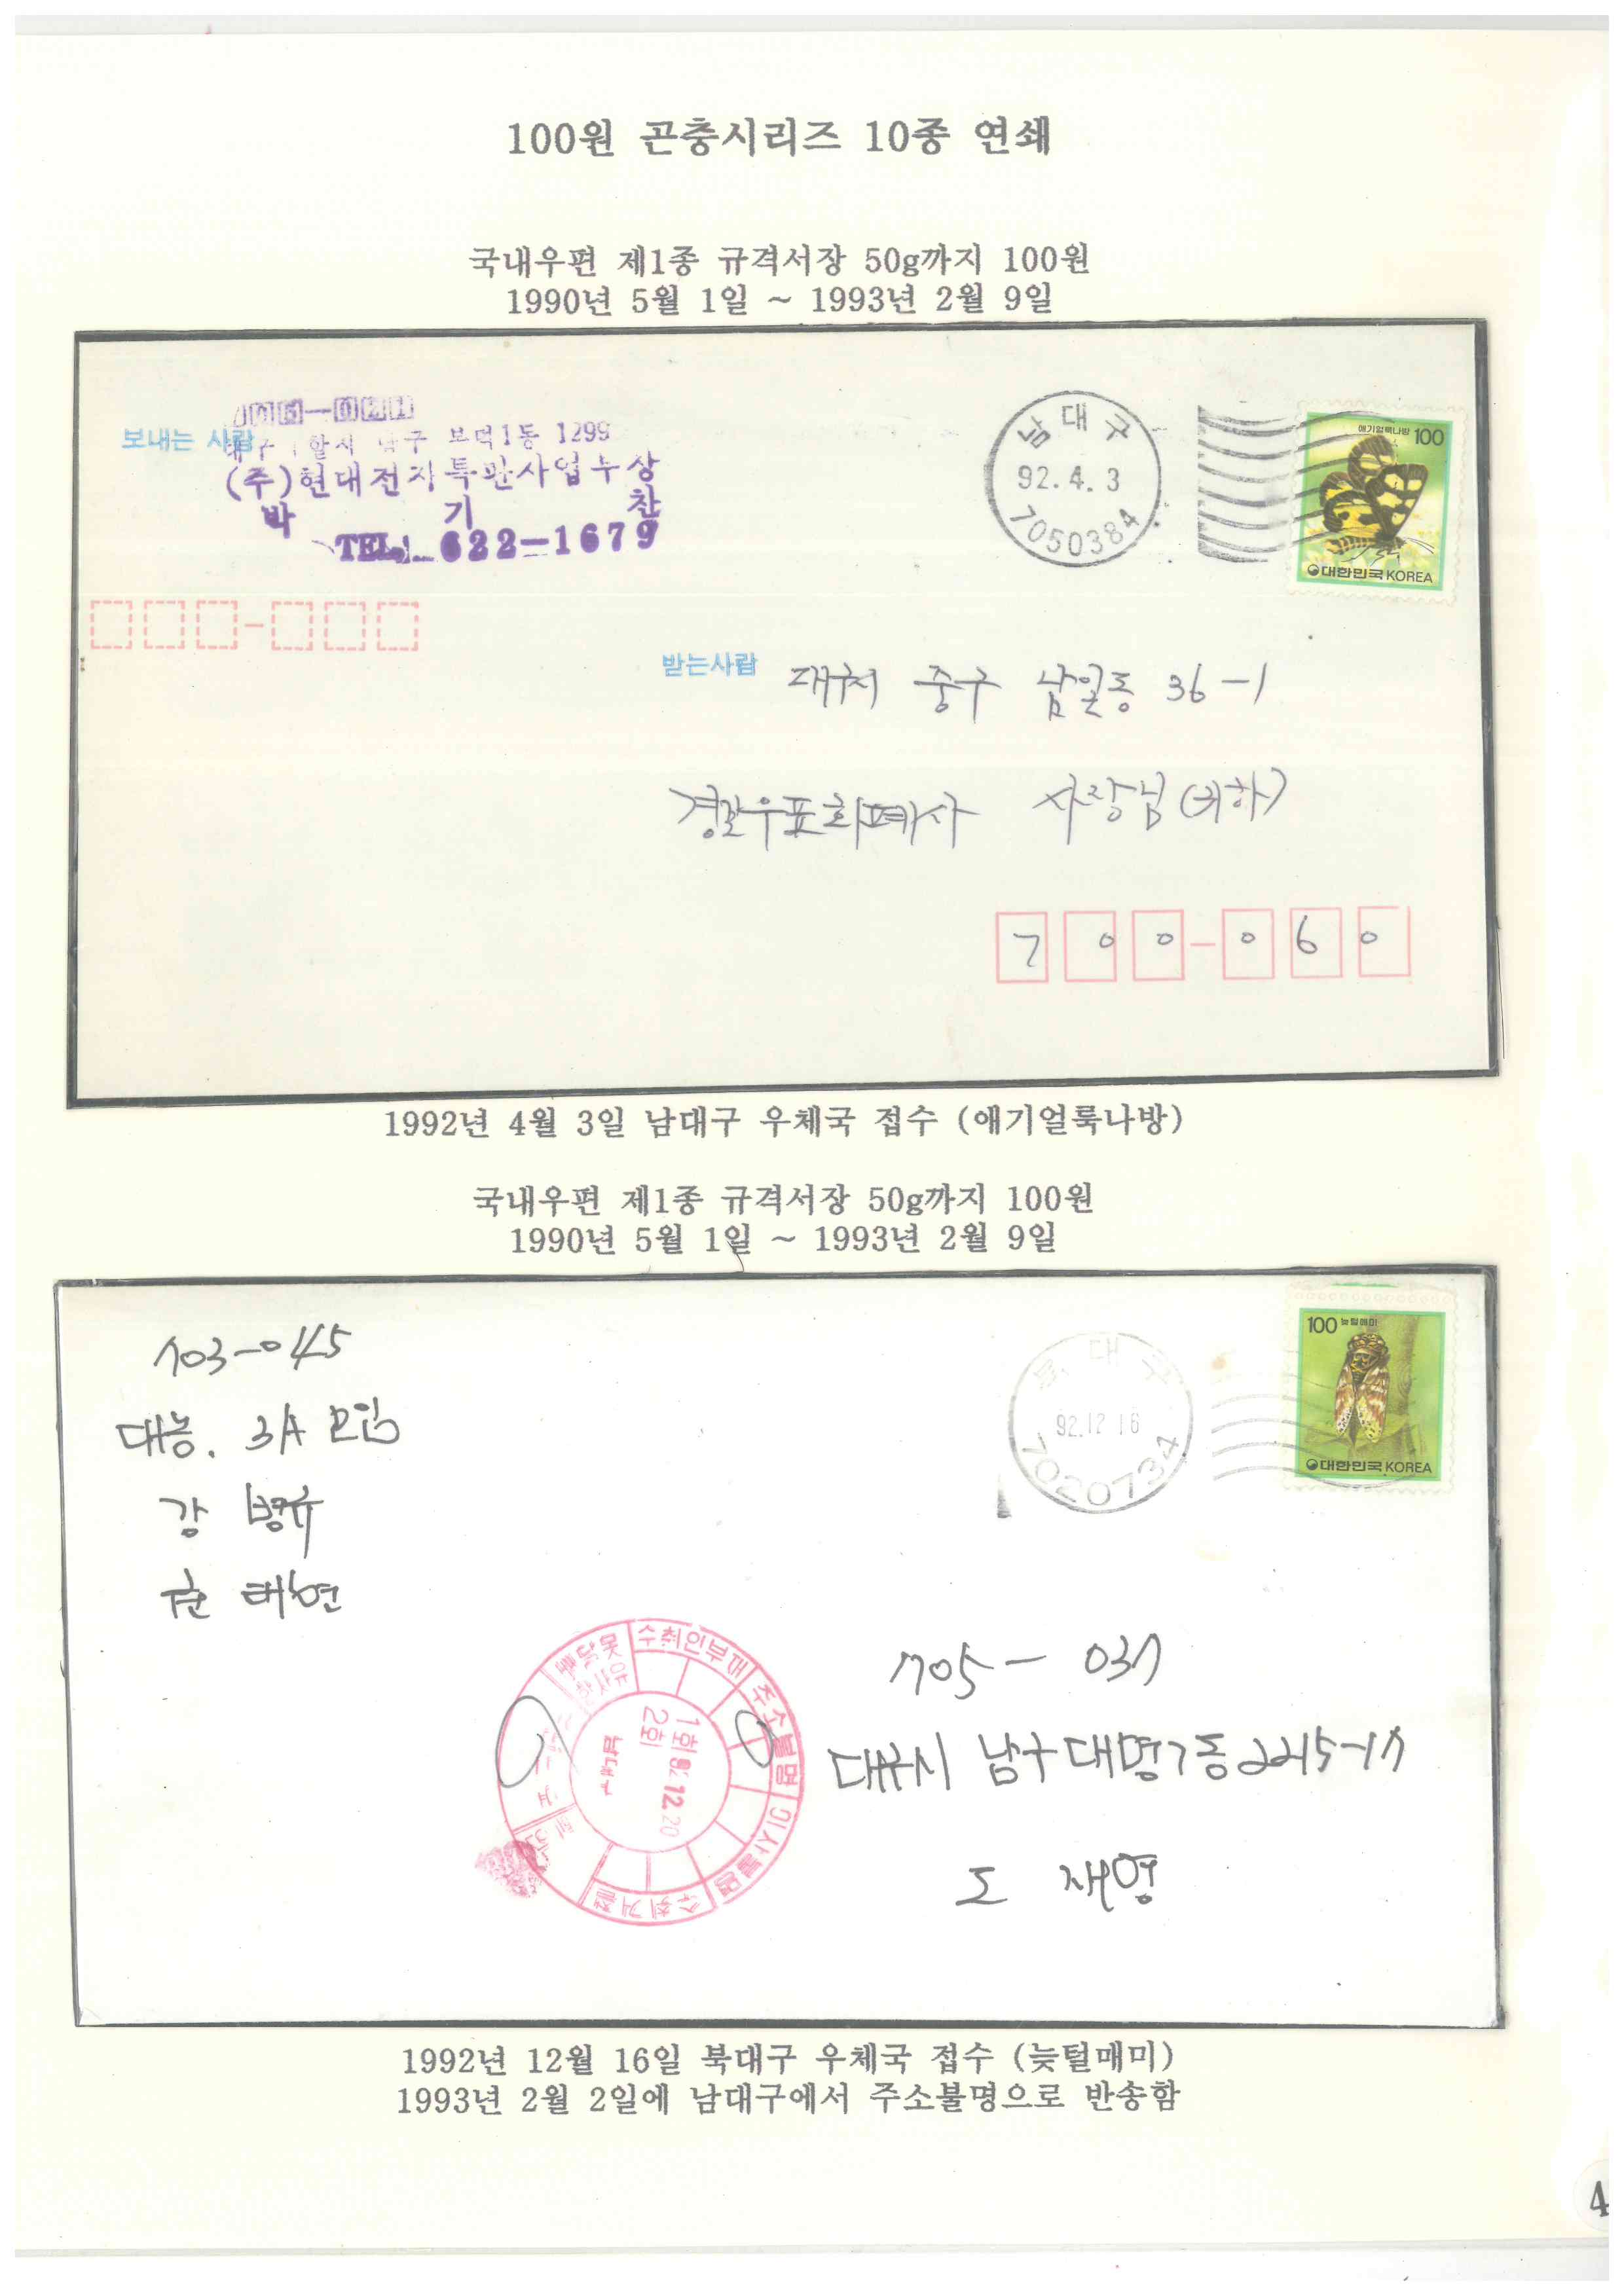 100원 곤충시리즈 10종 연쇄
국내우편 제1종 규격서장 50g까지 100원
1990년 5월 1일 ~ 1993년 2월 9일
보내는 사람
남구 1동 1299
(주)현대전자특판사업
박 기 찬
TEL. 622-1679
남대구
92. 4. 3
7050384
애기얼룩나방 100
대한민국 KOREA
받는사람
대구시 중구 남일동 36-1
우표화폐사 사장님 (귀하)
700-060
1992년 4월 3일 남대구 우체국 접수 (애기얼룩나방)
국내우편 제1종 규격서장 50g까지 100원
1990년 5월 1일 ~ 1993년 2월 9일
703-045
대농. 3A 모임
강 병규
태현
북대구
92.12 16
7020734
100 늦털매미
대한민국 KOREA
수취인부재
주소불명
이사불명
수취거절
1회
2회
12 20
남대구
705-037
대구시 남구 대명7동 2215-17
도 재영
1992년 12월 16일 북대구 우체국 접수 (늦털매미)
1993년 2월 2일에 남대구에서 주소불명으로 반송함
4